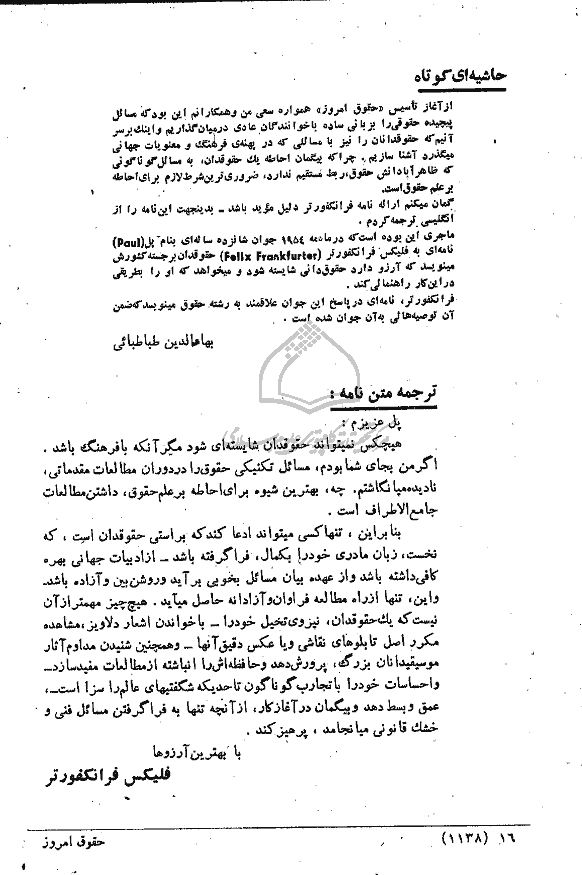 حاشیه‌ای کوتاه
از آغاز تأسیس «حقوق امروز» همواره سعی من و همکارانم این بود که مسائل
پیچیده حقوقی را بزبانی ساده با خوانندگان عادی درمیان گذاریم و اینک بر سر
آنیم که حقوقدانان را نیز با مسائلی که در پهنه‌ی فرهنگ و معنویات جهانی
میگذرد آشنا سازیم . چرا که بیگمان احاطه یك حقوقدان، به مسائل گوناگونی
که ظاهراً با دانش حقوق، ربط مستقیم ندارد، ضروری‌ترین شرط لازم برای احاطه
بر علم حقوق است.
گمان میکنم ارائه نامه فرانکفورتر دلیل مؤید باشد ـ بدینجهت این نامه را از
انگلیسی ترجمه کردم .
ماجری این بوده است که در ماه مه ۱۹۵۴ جوان شانزده ساله‌ای بنام پل (Paul)
نامه‌ای به فلیکس فرانکفورتر (Felix Frankfurter) حقوقدان برجسته کشورش
مینویسد که آرزو دارد حقوق‌دانی شایسته شود و میخواهد که او را بطریقی
در این کار راهنمائی کند .
فرانکفورتر، نامه‌ای در پاسخ این جوان علاقمند به رشته حقوق مینویسد که ضمن
آن توصیه‌هائی به آن جوان شده است .
بهاءالدین طباطبائی
ترجمه متن نامه :
پل عزیزم :
هیچکس نمیتواند حقوقدان شایسته‌ای شود مگر آنکه بافرهنگ باشد .
اگر من بجای شما بودم، مسائل تکنیکی حقوق را در دوران مطالعات مقدماتی،
نادیده میانگاشتم. چه، بهترین شیوه برای احاطه بر علم حقوق، داشتن مطالعات
جامع الاطراف است .
بنابراین ، تنها کسی میتواند ادعا کند که براستی حقوقدان است ، که
نخست، زبان مادری خود را بکمال، فرا گرفته باشد ـ از ادبیات جهانی بهره
کافی داشته باشد و از عهده بیان مسائل بخوبی برآید و روشن‌بین و آزاده باشد.
و این، تنها از راه مطالعه فراوان و آزادانه حاصل میآید . هیچ چیز مهمتر از آن
نیست که یك حقوقدان، نیروی تخیل خود را ـ با خواندن اشعار دلاویز، مشاهده
مکرر اصل تابلوهای نقاشی و یا عکس دقیق آنها ـ و همچنین شنیدن مداوم آثار
موسیقیدانان بزرگ، پرورش دهد و حافظه‌اش را انباشته از مطالعات مفید سازد ـ
و احساسات خود را با تجارب گوناگون تا حدیکه شگفتیهای عالم را سزا است ـ،
عمق و بسط دهد و بیگمان در آغاز کار، از آنچه تنها به فرا گرفتن مسائل فنی و
خشك قانونی میانجامد ، پرهیز کند .
با بهترین آرزوها
فلیکس فرانکفورتر
۱۶ (۱۱۳۸)
حقوق امروز